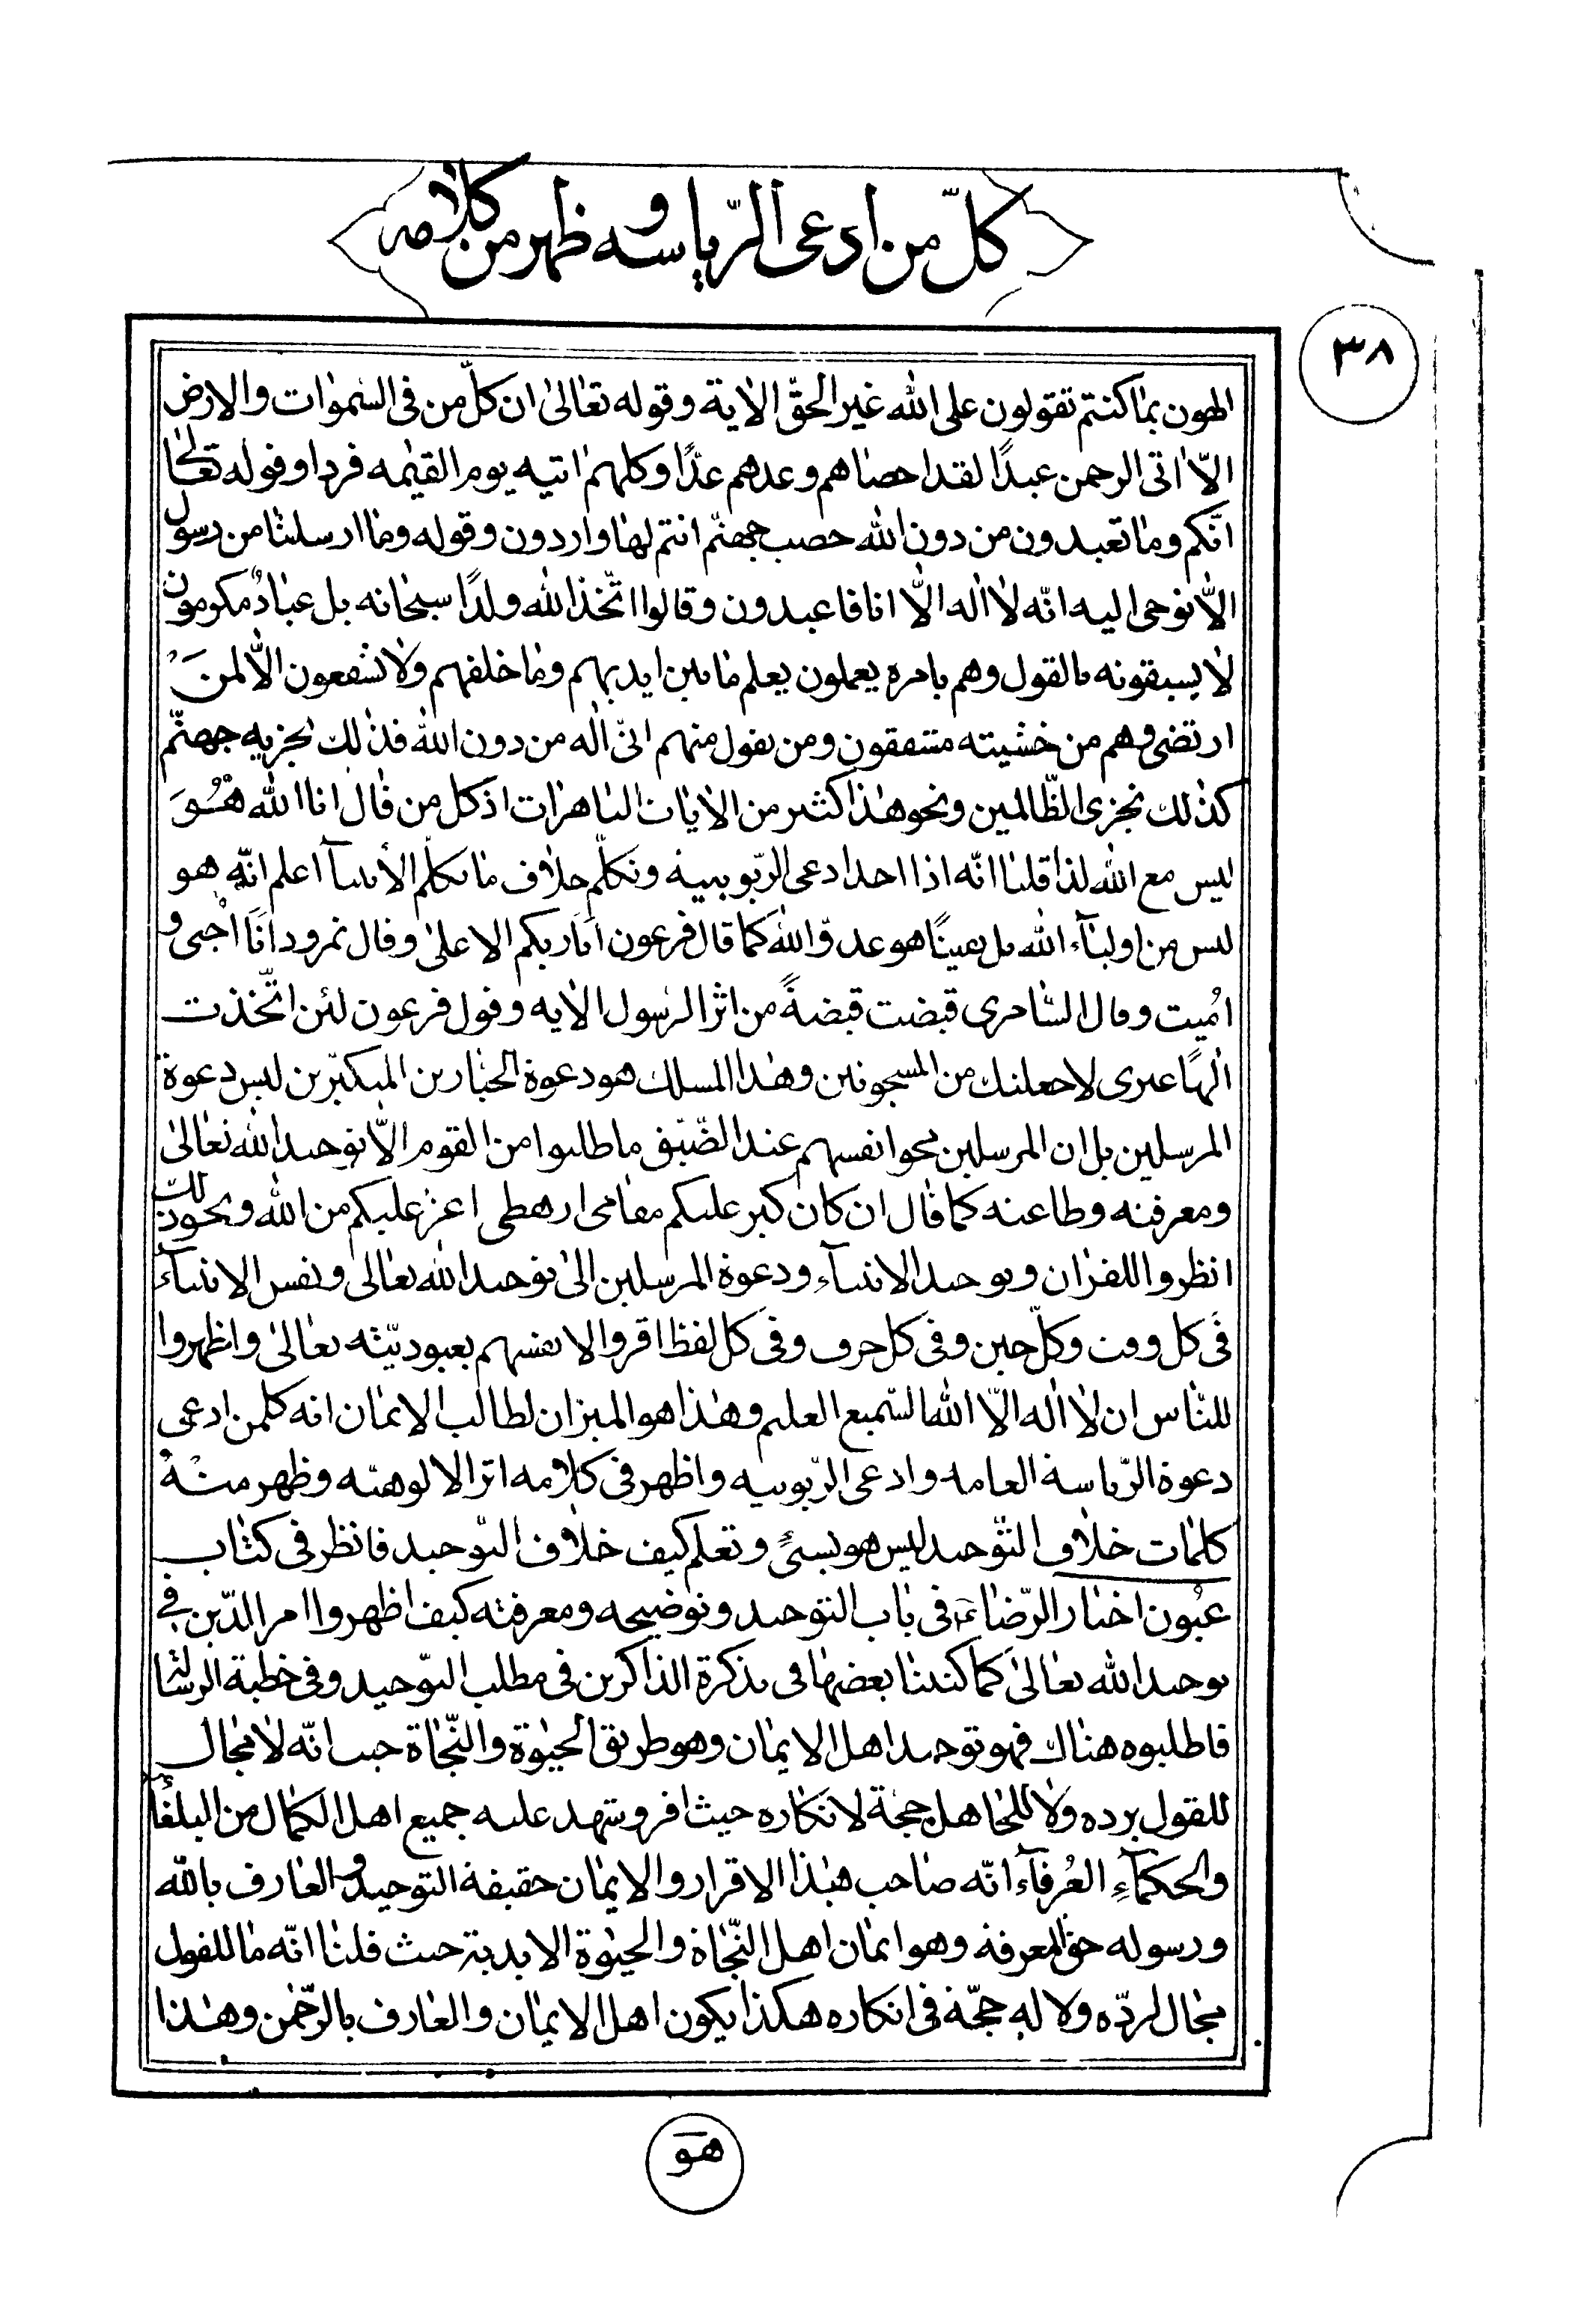 كلّ من ادعى الرّياسه و ظهر من كلامه
٣٨
الهون بما كنتم تقولون على الله غير الحقّ الاية وقوله تعالىٰ ان كلّ من فى السّموات والارض
الاّ اتى الرحمن عبدًا لقد احصاهم وعدهم عدًّا وكلهم اتيه يوم القيٰمه فردا وقوله تعالىٰ
انّكم وما تعبدون من دون الله حصب جهنّم انتم لها واردون وقوله وما ارسلنا من رسول
الاّ نوحى اليه انّه لا اله الاّ انا فاعبدون وقالوا اتّخذ الله ولدًا سبحانه بل عبادٌ مكرمون
لا يسبقونه بالقول وهم بامره يعملون يعلم ما بين ايديهم وما خلفهم ولا يشفعون الاّ لمن
ارتضى وهم من خشيته مشفقون ومن يقول منهم انّى اله من دون الله فذلك نجزيه جهنّم
كذلك نجزى الظّالمين ونحو هذا كثير من الايات الباهرات اذ كل من قال انا الله هُوَ
ليس مع الله لذا قلنا انّه اذا احد ادعى الرّبوبيية وتكلّم خلاف ما تكلّم الأنبيآ اعلم انّه هو
ليس من اوليآء الله بل يعينًا هو عدوّ الله كما قال فرعون انا ربكم الاعلىٰ وقال نمرود انا احيى و
اميت وقال السّامرى قبضت قبضةً من اثر الرسول الايه وقول فرعون لئن اتّخذت
الٰهًا غيرى لاجعلنك من المسجونين وهذا المسلك هو دعوة الجبّارين المبكبّرين ليس دعوة
المرسلين بل ان المرسلين محو انفسهم عند الضّيق ما طلبوا من القوم الاّ توحيد الله تعالىٰ
ومعرفته وطاعته كما قال ان كان كبر عليكم مقامى ارهطى اعزّ عليكم من الله ونحو ذلك
انظروا للقران وتوحيد الانبيآء ودعوة المرسلين الىٰ توحيد الله تعالىٰ ونفس الانبيآء
فى كل وقت وكلّ حين وفى كل حرف وفى كل لفظ اقروا لانفسهم بعبوديّته تعالىٰ واظهروا
للنّاس ان لا اله الاّ الله السّميع العليم وهذا هو الميزان لطالب الايمان انه كلمن ادعى
دعوة الرّياسة العامه وادعى الرّبوبيه واظهر فى كلامه اثر الالوهيّه وظهر منهُ
كلمات خلاف التّوحيد ليس هو بشئ وتعلم كيف خلاف التّوحيد فانظر فى كتاب
عيون اخبار الرّضاء فى باب التّوحيد وتوضيحه ومعرفته كيف اظهروا امر الدّين فى
توحيد الله تعالىٰ كما كتبنا بعضها فى تذكرة الذاكرين فى مطلب التّوحيد وفى خطبة الرسالة
فاطلبوه هناك فهو توحيد اهل الايمان وهو طريق الحيٰوة والنّجاة حيب انّه لا مجال
للقول برده ولا للجاهل حجة لانكاره حيث اقر وشهد عليه جميع اهل الكمال من البلغآ
والحكمآءِ العُرفآء انّه صاحب هذا الاقرار والايمان حقيقة التوحيد و العارف بالله
ورسوله حق المعرفة وهو ايمان اهل النّجاة والحيٰوة الابدية حيث قلنا انّه ما للقول
مجال لردّه ولا له حجّة فى انكاره هكذا يكون اهل الايمان والعارف بالرّحمٰن وهذا
هو